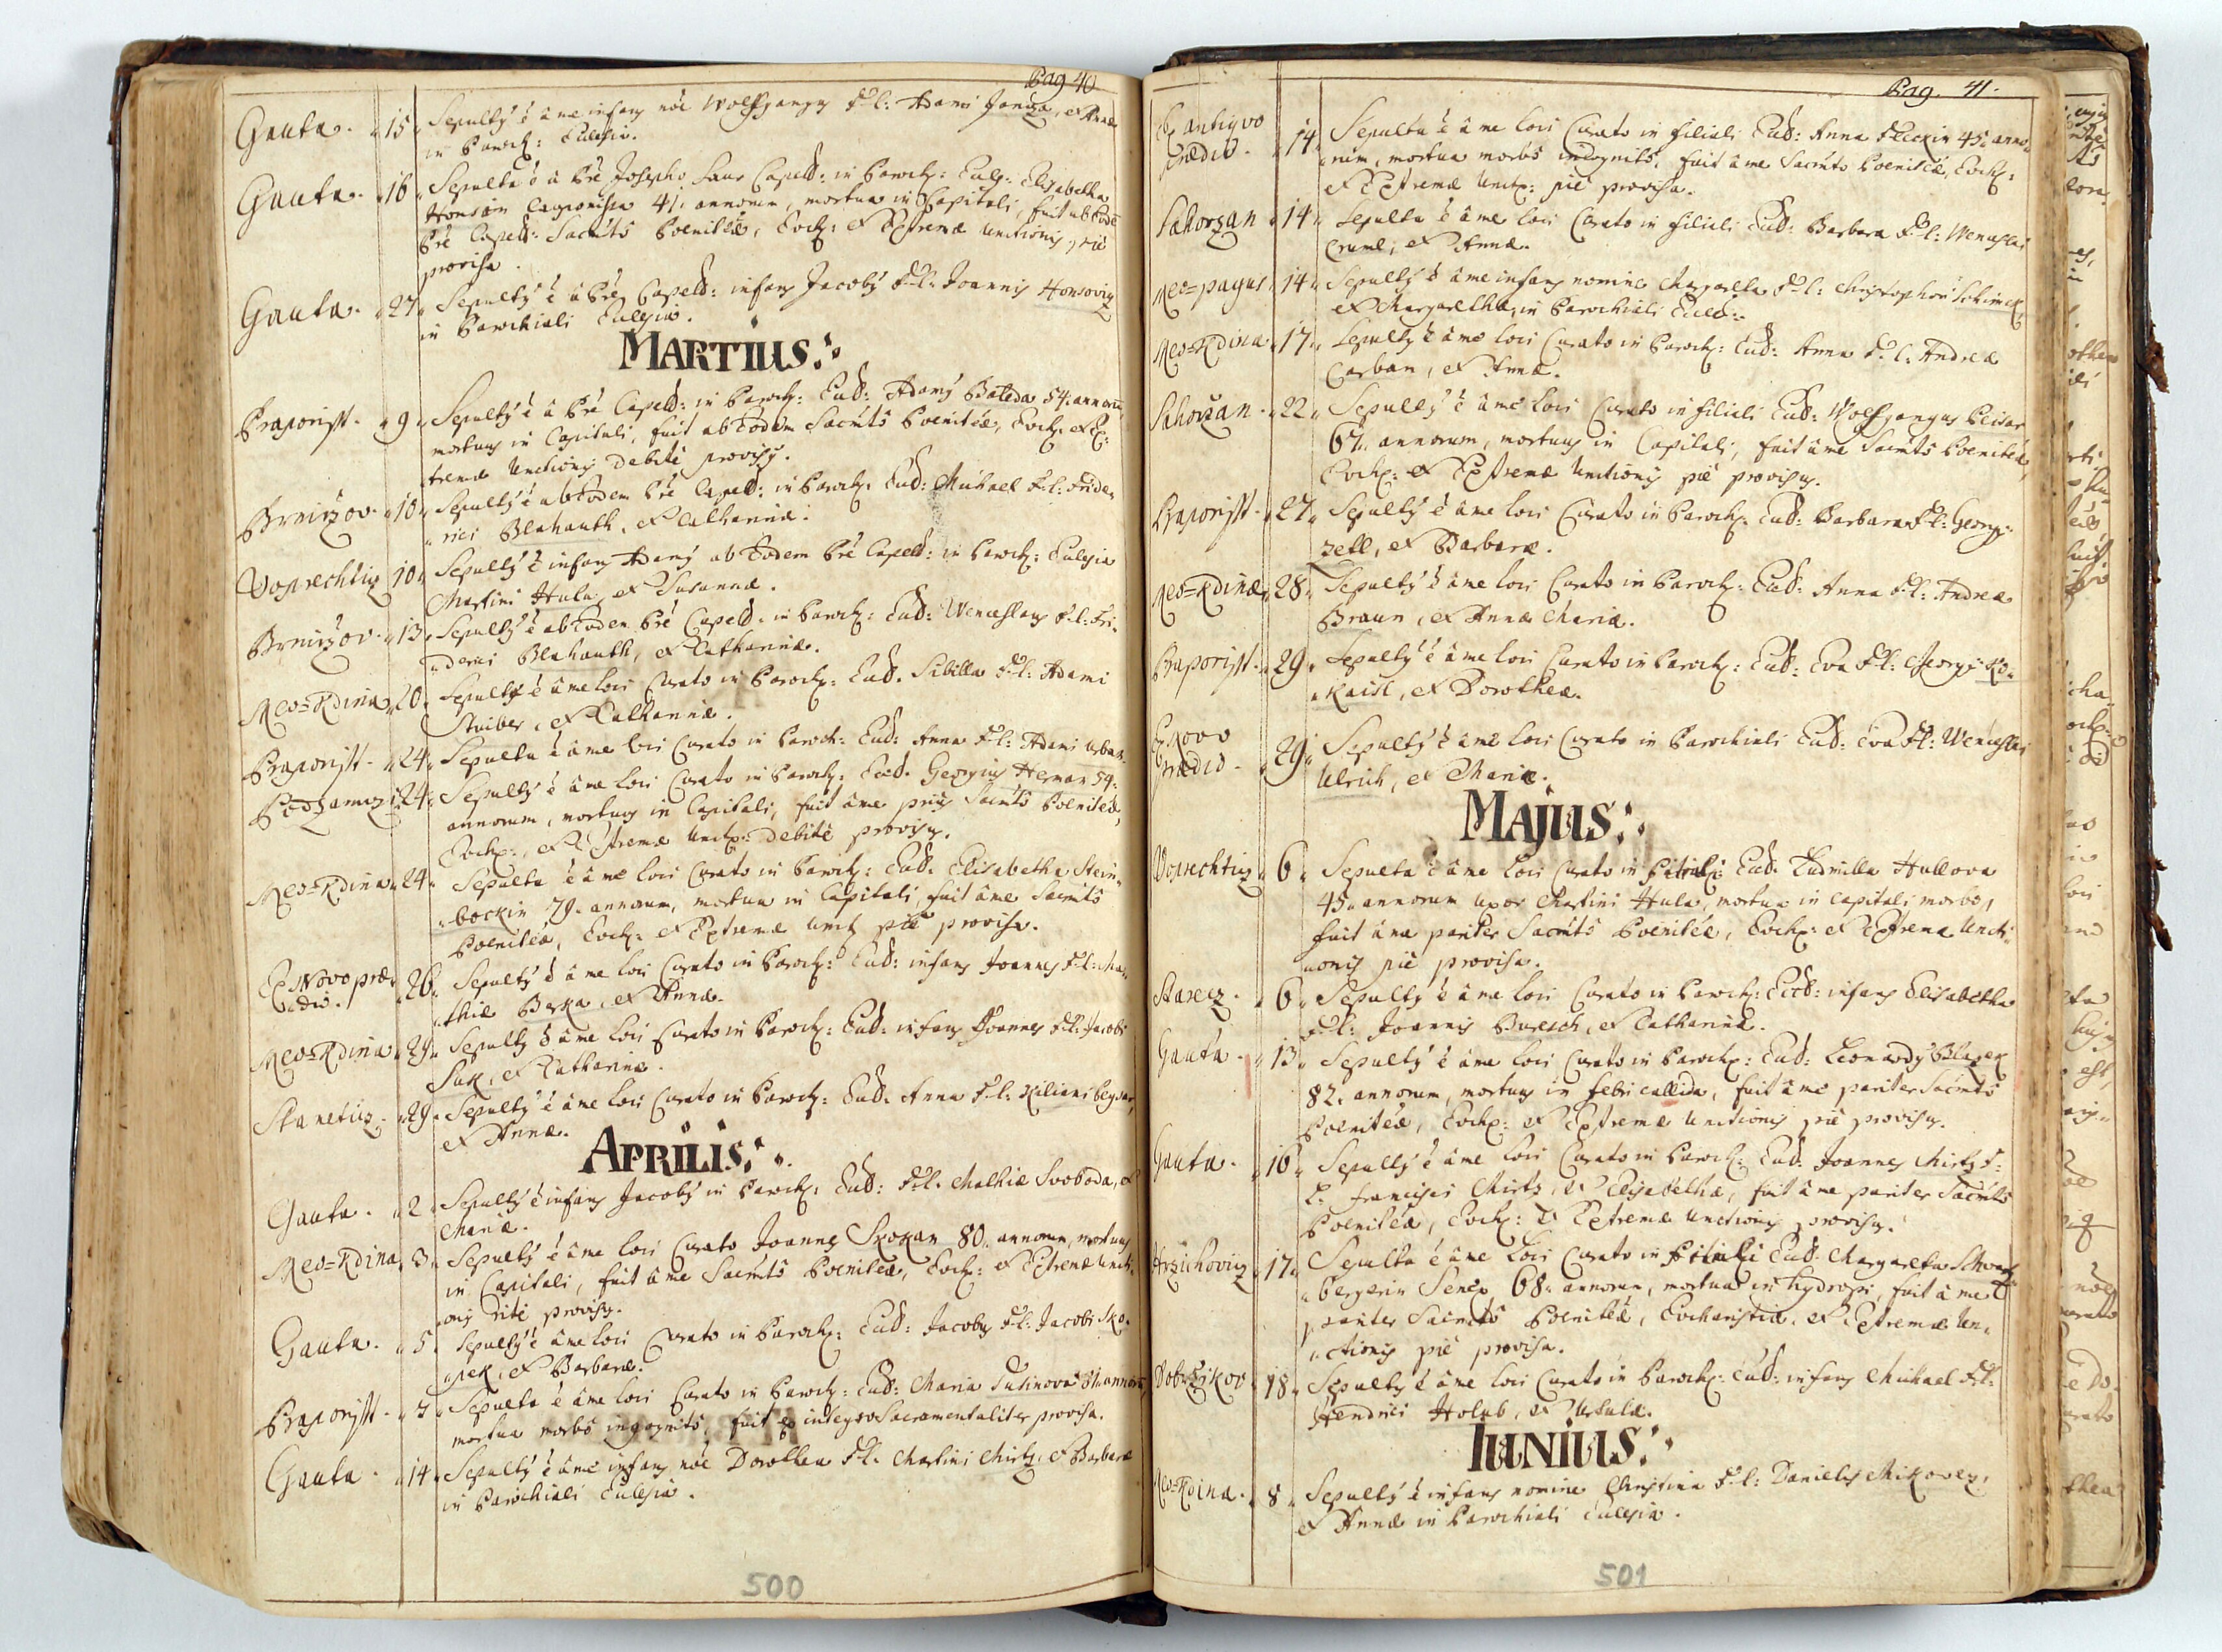 Pag 40
Gauta. 15 Sepultus è à me infans nõe Wolfgangus F. l: Adami Janda, et Annæ
in Paroch: Ecclesia.
Gauta. 16 Sepulta è à Prè Josepho Capell: in Paroch: Eccles: Elisabetha
41. annorum, mortua in Capitali, fuit ab Eodē
Prè Capell: Sacrãto Poenitēæ, Euch: et Extremæ Unctionis, piè
provisa.
Gauta. 27 Sepultus è à Prè Capell: infans Jacobus F. l. Joannis Honsoviz
in Parochiali Ecclesia.
MARTIUS:
Braporist. 9 Sepultus è à Prè Capell: in Paroch: Eccl: Adamus Bateda 54. annorū,
mortuus in Capitali, fuit ab Eodem Sacrãto Poenitēæ, Euch. et Ex:
tremæ Unctionis debitè provisus.
Brniržov. 10 Sepultus è ab Eodem Prè Capell: in Paroch: Eccl: Michael F. l: Fride
rici Blahauth, et Catharinæ.
Voprechtiz 10 Sepultus è infans Adamus ab Eodem Prè Capell: in Paroch: Ecclesia
Martini Hula, et Susannæ.
Brniržov. 13 Sepultus è ab Eodem Prè Capell. in Paroch: Eccl: Wenceslaus F. l: Fri
derici Blahauth, et Catharinæ.
Neo=Kdina 20 Sepultus è à me loci Curato in Paroch: Eccl. Sibilla F. l: Adami
Stuiber, et Catharinæ.
Braporist. 24 Sepulta è à me loci Curato in Paroch: Eccl: Anna F. l: Adami Urban.
24 Sepultus è à me loci Curato in Paroch: Eccl. Georgius Herman 54.
annorum, mortuus in Capitali, fuit à me prius Sacrãto Poenitēæ,
Euch:, et Extremæ Unct: debitè provisus.
Neo=Kdina 24 Sepulta è à me loci Curato in Paroch: Eccl. Elisabetha Stein
bockin 79. annorum, mortua in Capitali, fuit à me Sacrãto
Poenitēæ, Euch: et Extremæ Unct piè provisa.
Ex Novo præ
dio. 26 Sepultus è à me loci Curato in Paroch: Eccl: infans Joannes F. l: Ma
thiæ Berka, et Annæ.
Neo=Kdina 29 Sepultus è à me loci Curato in Paroch: Eccl: infans Joannes F. l: Jacobi
Suk, et Catharinæ.
Stanetiz 29 Sepultus è à me loci Curato in Paroch: Eccl: Anna F. l: Kiliani
et Annæ.
APRILIS:
Gauta. 2 Sepultus è infans Jacobus in Paroch: Eccl: F. l. Mathiæ Svoboda, et
Mariæ.
Neo=Kdina 3 Sepultus è à me loci Curato Joannes Skokan 80. annorum, mortuus
in Capitali, fuit à me Sacrãto Poenitēæ, Euch: et Extremæ Uncti
onis ritè provisus.
Gauta. 5 Sepultus è à me loci Curato in Paroch: Eccl: Jacobus F. l: Jacobi Sko
pek, et Barbaræ.
Braporist. 7 Sepulta è à me loci Curato in Paroch: Eccl: Maria annorū
mortua morbo incognito, fuit ex integro Sacramentaliter provisa.
Gauta 14 Sepultus è à me infans nõe Dorothea F. l. Martini Mirtz, et Barbaræ
in Parochiali Ecclesia.
500
Pag. 41.
Ex antiqvo
prædio. 14 Sepulta è à me loci Curato in filiali Eccl: Anna 45. anno
rum, mortua morbo incognito, fuit à me Sacrãto Poenitēæ, Euch:
et Extremæ Unct: piè provisa.
Sahoržan 14 Sepulta è à me loci Curato in filiali Eccl: Barbara F. l: Wenceslai
et Annæ.
Neo=pagus 14 Sepultus è à me infans nomine Margaretha F. l: Christophori Schimek,
et Margarethæ, in Parochiali Eccl:
Neo=Kdina 17 Sepultus è à me loci Curato in Paroch: Eccl: Anna F. l: Andreæ
Carban, et Annæ.
Sahoržan 22 Sepultus è à me loci Curato in filiali Eccl: Wolfgangus
67. annorum, mortuus in Capitali, fuit à me Sacrãto Poenitēæ,
Euch: et Extremæ Unctionis piè provisus.
Braporist. 27 Sepultus è à me loci Curato in Paroch. Eccl: Barbara F. l: Georgi
Zell, et Barbaræ.
Neo=Kdinæ 28 Sepultus è à me loci Curato in Paroch: Eccl: Anna F. l: Andreæ
Braun, et Annæ Mariæ.
Braporist. 29 Sepultus è à me loci Curato in Paroch: Eccl: Eva F. l: Georgi Ko
kaisl, et Dorotheæ.
Ex Novo
prædio 29 Sepultus è à me loci Curato in Parochiali Eccl: Eva F. l: Wenceslai
Ulrich, et Mariæ.
MAJUS:
Voprechtiz 6 Sepulta è à me loci Curato in Eccl. Ludmilla Hullova
45. annorum uxor Martini Hula, mortua in capitali morbo,
fuit à me pariter Sacrãto Poenitēæ, Euch: et Extremæ Uncti
onis piè provisa.
Starecz. 6 Sepultus è à me loci Curato in Paroch: Eccl: infans Elisabetha
F. l: Joannis Buresch, et Catharinæ.
Gauta. 13 Sepultus è à me loci Curato in Paroch: Eccl: Leonardus Blazek
82. annorum, mortuus in febri callida, fuit à me pariter Sacrãto
Poenitēæ, Euch: et Extremæ Unctionis piè provisus.
Gauta. 16 Sepultus è à me loci Curato in Paroch: Eccl: Joannes Mirtz F.
l. Francisci Mirtz, et Elisabethæ, fuit à me pariter Sacrãto
Poenitēæ, Euch: et Extremæ Unctionis provisus.
Hržichoviz 17 Sepulta è à me loci Curato in Eccl. Margaretha Schwartz
bergerin Senex 68. annorum, mortua in hydropi, fuit à me
pariter Sacrãto Poenitēæ, Eucharistiæ, et Extremæ Un
ctionis piè provisa.
Dobržikov 18 Sepultus è à me loci Curato in Paroch: Eccl: infans Michael F. l:
Hendrici Holub, et Ursulæ.
IUNIUS:
Neo=Kdina. 8 Sepultus è infans nomine Christina F. l: Danielis Mikovez,
et Annæ in Parochiali Ecclesia.
501